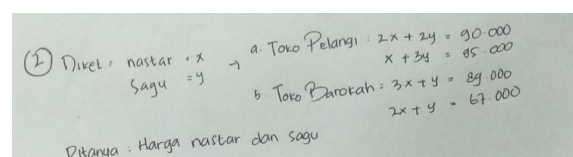 ② Diket : nastar = x → a. Toko Pelangi : 2x + 2y = 90.000
x + 3y = 95.000
Sagu = y
b. Toko Barokah : 3x + y = 89.000
2x + y = 67.000
Ditanya : Harga nastar dan sagu